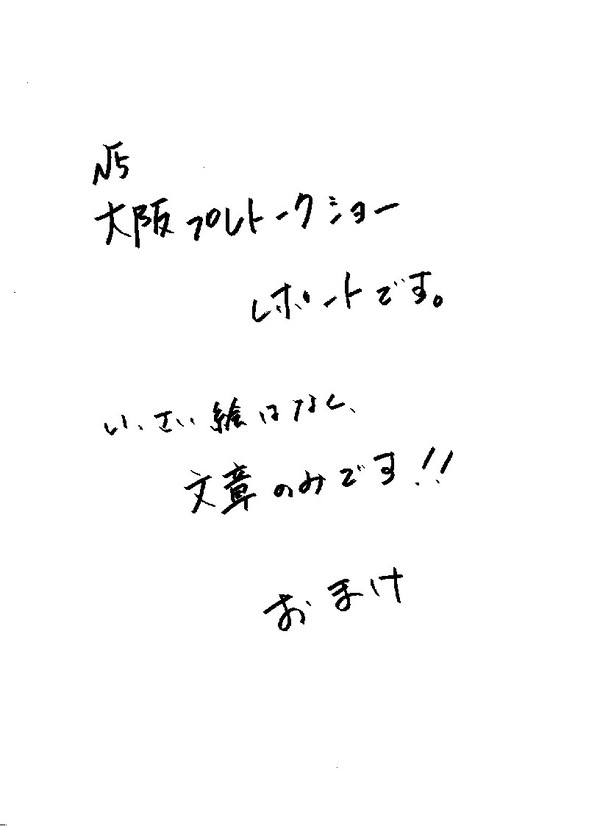 √5
大阪プレトークショー
レポートです。
いっさい絵はなし、
文章のみです!!
おまけ